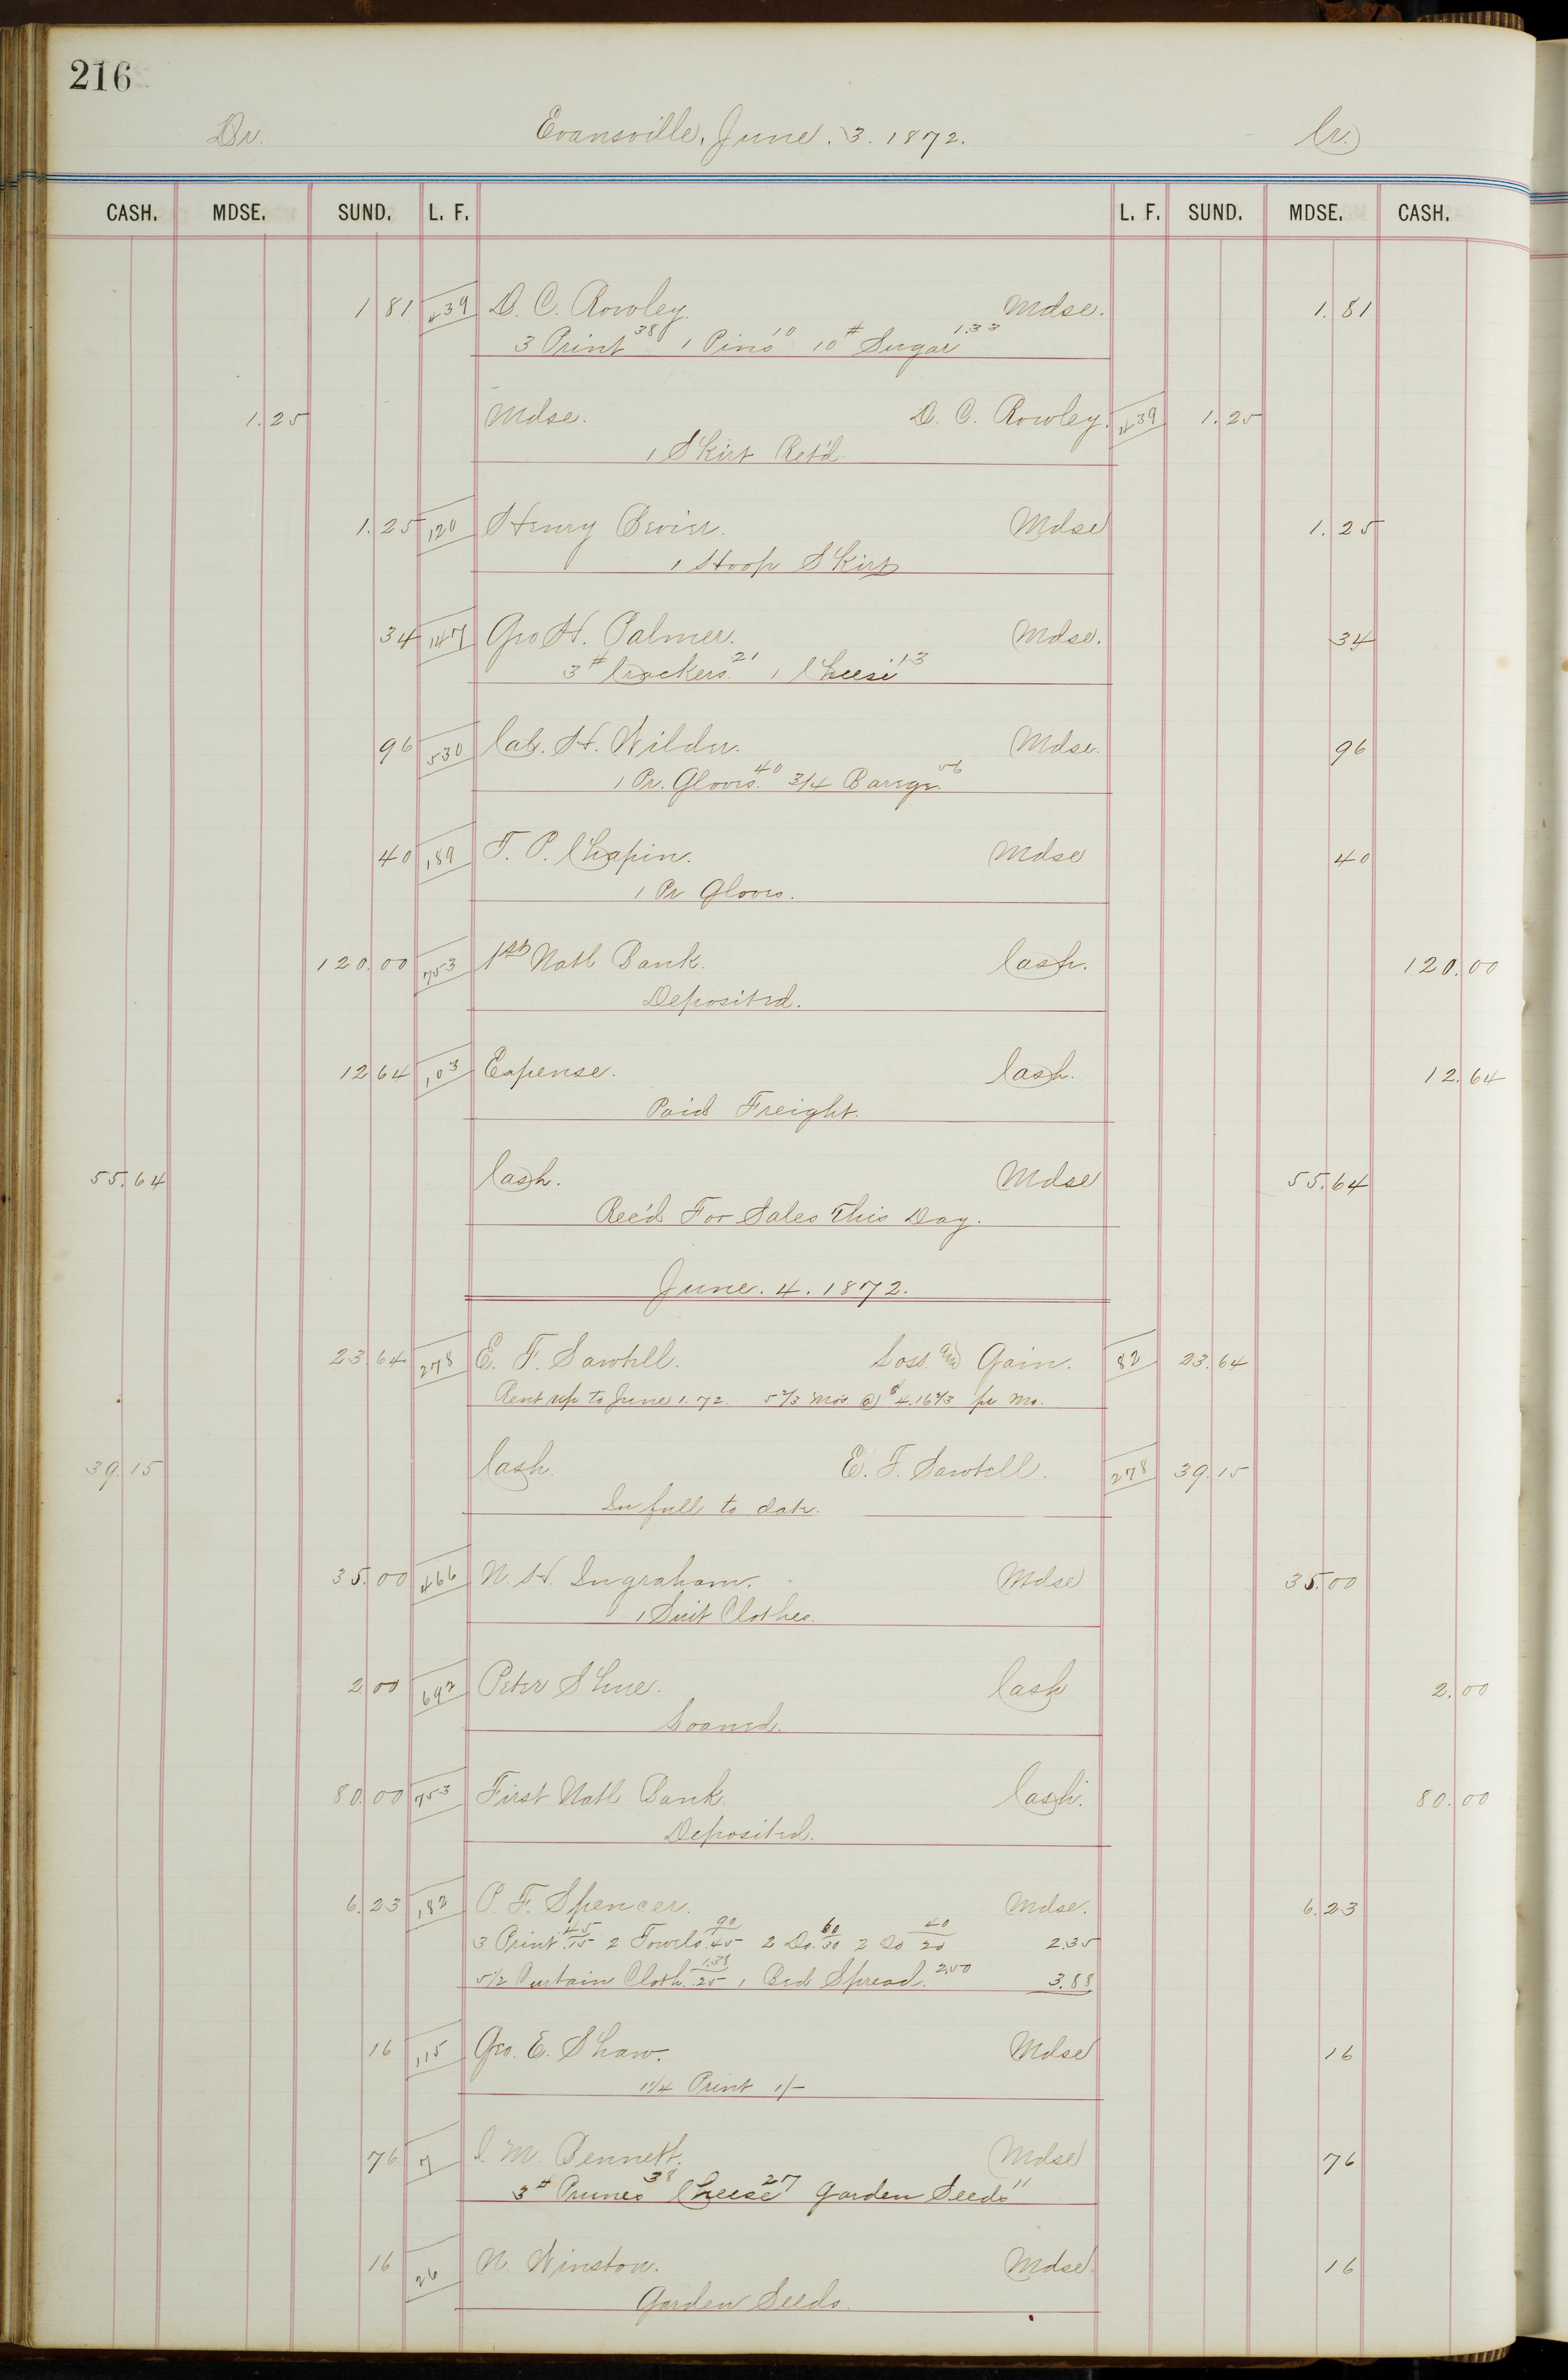 216
Dr. Evansville, June. 3. 1872. Cr.
CASH. MDSE. SUND. L. F. L. F. SUND. MDSE. CASH.
1 81 439 D. C. Rowley. Mdse. 1. 81
3 Print 38 1 Pins 10 10 # Sugar 1.33
1.25 Mdse. D. C. Rowley. 439 1.25
1 Skirt Ret'd.
1.25 120 Henry Bevier. Mdse 1.25
1 Hoop Skirt
34 147 Geo H. Palmer. Mdse. 34
3 # Crackers. 21 1 Cheese 13
96 530 Cal. H. Wilder. Mdse. 96
1 Pr. Gloves. 40 3/4 Barege. 56
40 189 T. P. Chapin. Mdse 40
1 Pr Gloves.
120.00 753 1st Natl Bank. Cash. 120.00
Deposited.
12 64 103 Expense. Cash. 12.64
Paid Freight.
55.64 Cash. Mdse 55.64
Rec'd For Sales This Day.
June. 4. 1872.
23.64 278 E. F. Sawtell. Loss. and Gain. 82 23.64
Rent up to June 1. 72. 5 2/3 Mos. @ $4.16 2/3 per Mo.
39.15 Cash. E. F. Sawtell. 278 39.15
In full to date.
35.00 466 N. H. Ingraham. Mdse 35.00
1 Suit Clothes.
2.00 692 Peter Shue. Cash 2.00
Loaned.
80.00 753 First Natl Bank. Cash. 80.00
Deposited.
6.23 182 P. F. Spencer. Mdse. 6.23
3 Print 45/.15 2 Towels. 90/.45 2 Do. 60/30 2 Do 40/20 2.35
5 1/2 Curtain Cloth. 1.38/.25 1 Bed Spread. 2.50 3.88
16 115 Geo. E. Shaw. Mdse 16
1 1/4 Print 1/-
76 7 C. M. Bennett. Mdse 76
3 # Prunes 38 Cheese 27 Garden Seeds 11
16 26 N. Winston. Mdse. 16
Garden Seeds.